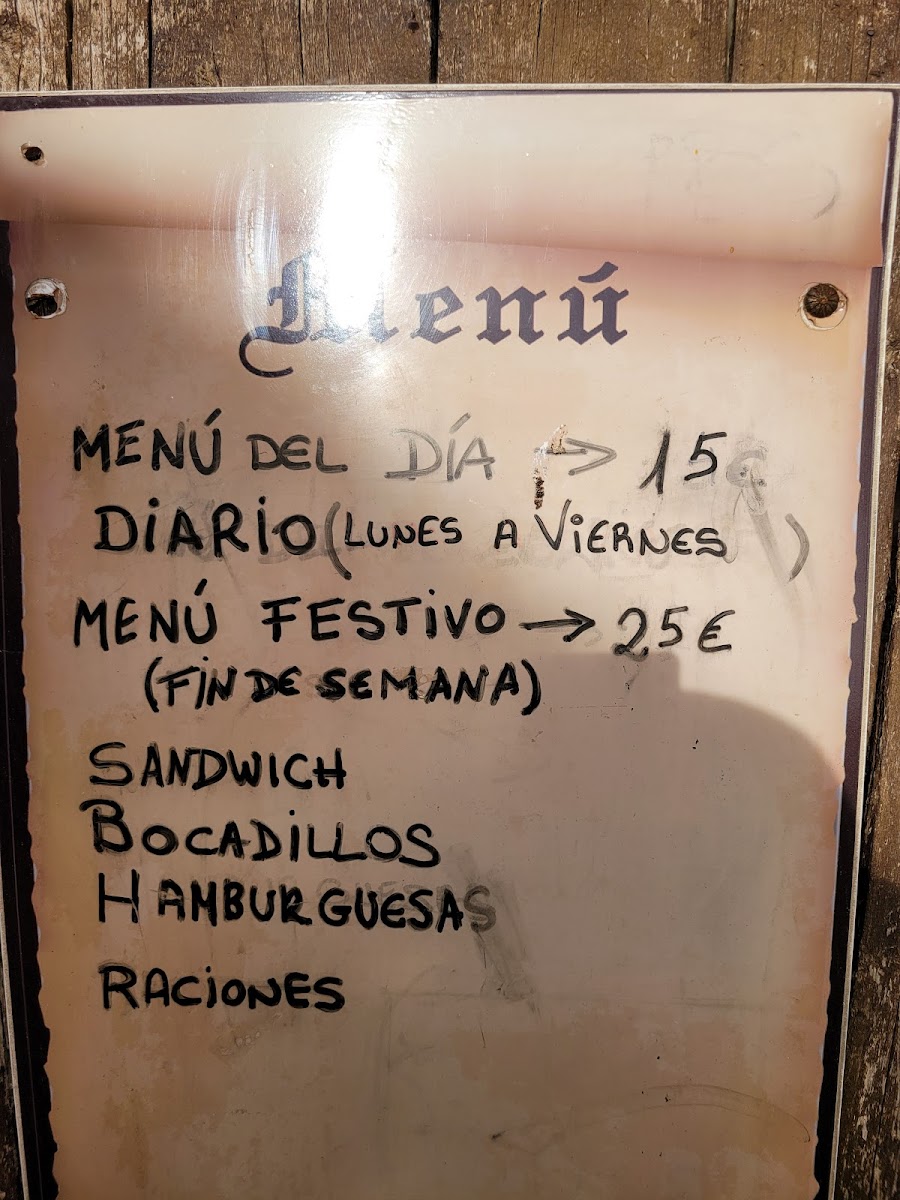 Menú
MENÚ DEL DÍA → 15€
DIARIO (LUNES A VIERNES)
MENÚ FESTIVO → 25€
(FIN DE SEMANA)
SANDWICH
BOCADILLOS
HAMBURGUESAS
RACIONES